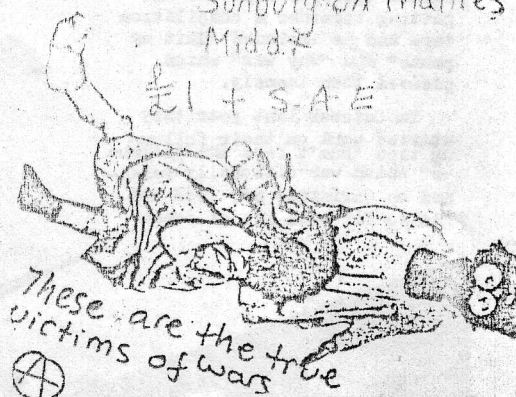 Sunbury on Thames
Middx
£1 + S.A.E
These are the true
victims of wars